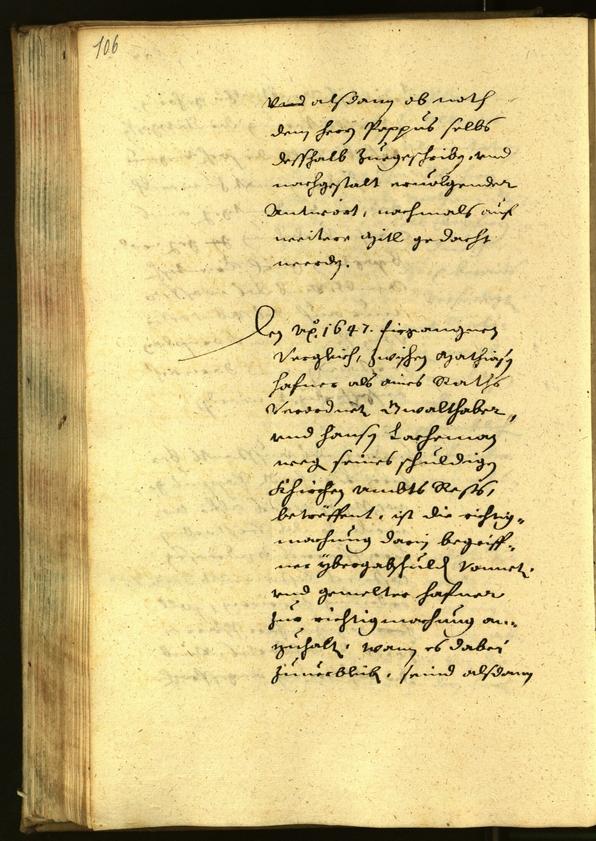 106
Vnd alßdann ob noch
dem herrn Pappus selbs
desshalb zuegeschriben, vnd
nachgestalt ervolgender
Antwort, nachmals auf
weitere Mitl gedacht
werden.
Den Ao. 1647. fürgangnen
Vergleich, zwischen Mathiasen
Hafner als aines Raths
Verordneten Gwalthaber,
vnd Hansen Lacheman
wegen seines schuldigen
Khirchen Ambts Rests,
betreffent, ist die richtig-
machung darin begriff-
ner ybergab schuld
vnd gemelter Hafner
zur richtigmachung an-
zuhalten, wann es dabei
zuuerbleiben, seind alßdann